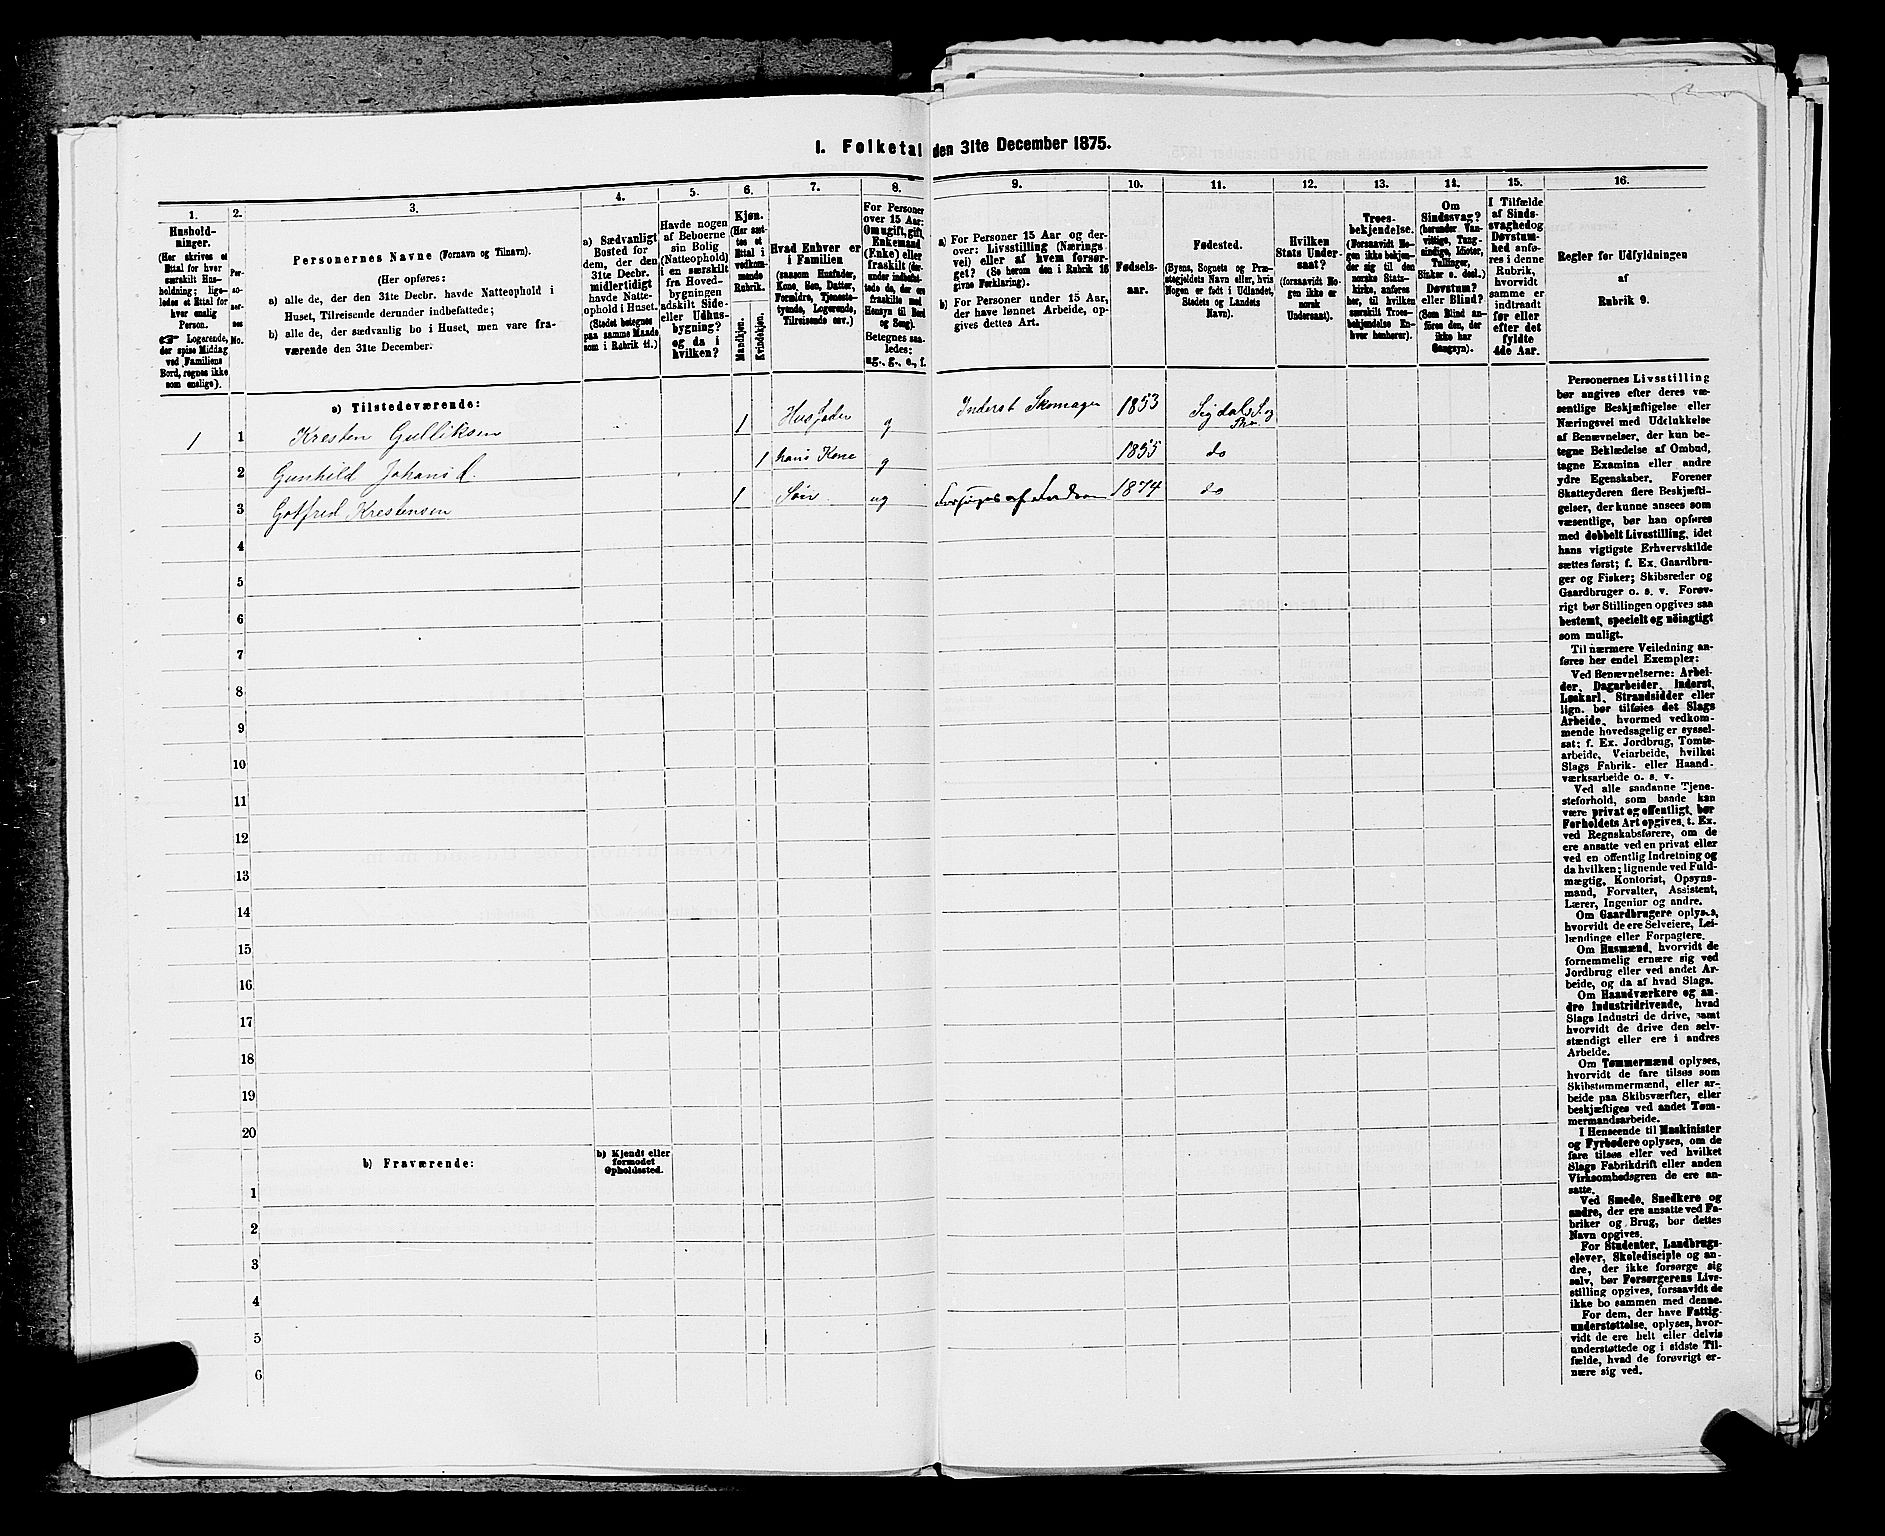 I. Folketal den 31te December 1875.
1.
2.
3.
4.
5.
6.
7.
8.
9.
10.
11.
12.
13.
14.
15.
16.
Hushold-
ninger.
(Her skrives et
Ettal for hver
særskilt Hus-
holdning; lige-
ledes et Ettal for
hver enslig
Person.
☞ Logerende,
der spise Middag
ved Familiens
Bord, regnes ikke
som enslige).
Per-
so-
ner-
nes
No.
Personernes Navne (Fornavn og Tilnavn).
(Her opføres:
a) alle de, der den 31te Decbr. havde Natteophold i
Huset, Tilreisende derunder indbefattede;
b) alle de, der sædvanlig bo i Huset, men vare fra-
værende den 31te December.
a) Sædvanligt
Bosted for
dem, der den
31te Decbr.
midlertidigt
havde Natte-
ophold i Huset.
(Stedet betegnes
paa samme Maade
som i Rubrik 11.)
Havde nogen
af Beboerne
sin Bolig
(Natteophold)
i en særskilt
fra Hoved-
bygningen
adskilt Side-
eller Udhus-
bygning?
og da i
hvilken?
Kjøn.
(Her sæt-
tes et
Ettal i
vedkom-
mende
Rubrik.
Mandkjøn.
Kvindekjøn.
Hvad Enhver er
i Familien
(saasom Husfader,
Kone, Søn, Datter,
Forældre, Tjeneste-
tyende, Logerende,
Tilreisende osv.)
For Personer
over 15 Aar:
Om ugift, gift,
Enkemand
(Enke) eller
fraskilt (der-
under indbefat-
tede de, der ere
fraskilte med
Hensyn til Bord
og Seng).
Betegnes saa-
ledes:
ug., g., e., f.
a) For Personer 15 Aar og der-
over: Livsstilling (Nærings
vei) eller af hvem forsør-
get? (Se herom den i Rubrik 16
givne Forklaring).
b) For Personer under 15 Aar,
der have lønnet Arbeide, op-
gives dettes Art.
Fødsels-
aar.
Fødested.
(Byens, Sognets og Præ-
stegjeldets Navn eller, hvis
Nogen er født i Udlandet,
Stedets og Landets
Navn).
Hvilken
Stats Under-
saat?
(forsaavidt No-
gen ikke er
norsk
Undersaat).
Troes-
bekjendelse.
(Forsaavidt No-
gen ikke bekjen-
der sig til den
norske Stats-
kirke, anføres
her, til hvilken
særskilt Troes-
bekjendelse En-
hver henhører).
Om
Sindssvag?
(herunder Van-
vittige, Tung-
sindige, Idioter,
Tullinger,
Sinker o. desl.)
Døvstum?
eller Blind?
(Som Blind an-
føres den, der
ikke har
Gangsyn).
I Tilfælde
af Sinds-
svaghed og
Døvstum-
hed anfø-
res i denne
Rubrik,
hvorvidt
samme er
indtraadt
før eller
efter det
fyldte
4de Aar.
Regler for Udfyldningen
af
Rubrik 9.
a) Tilstedeværende:
1 1 Kresten Gulliksen 1 Husfader g Inderst Skomager 1853 Sigdals S. og
2 Gunhild Johansd. 1 hans Kone g 1855 do
3 Gotfred Krestensen 1 Søn ug Forsørges af Faderen 1874 do
4
5
6
7
8
9
10
11
12
13
14
15
16
17
18
19
20
b) Fraværende:
b) Kjendt eller
formodet
Opholdssted.
1
2
3
4
5
6
Personernes Livsstilling
bør angives efter deres væ-
sentlige Beskjæftigelse eller
Næringsvei med Udelukkelse
af Benævnelser, der kun be-
tegne Beklædelse af Ombud,
tagne Examina eller andre
ydre Egenskaber. Forener
Skatteyderen flere Beskjæfti-
gelser, der kunne ansees som
væsentlige, bør han opføres
med dobbelt Livsstilling, idet
hans vigtigste Erhvervskilde
sættes først; f. Ex. Gaardbru-
ger og Fisker; Skibsreder og
Gaardbruger o. s. v. Forøv-
rigt bør Stillingen opgives saa
bestemt, specielt og nøiagtigt
som muligt.
Til nærmere Veiledning an-
føres her endel Exempler:
Ved Benævnelserne: Arbei-
der, Dagarbeider, Inderst,
Løskarl, Strandsidder eller
lign. bør tilføies det Slags
Arbeide, hvormed vedkom-
mende hovedsagelig er syssel-
sat; f. Ex. Jordbrug, Tomte-
arbeide, Veiarbeide, hvilket
Slags Fabrik- eller Haand-
værksarbeide o. s. v.
Ved alle saadanne Tjene-
steforhold, som baade kan
være privat og offentligt, bør
Forholdets Art opgives, t. Ex.
ved Regnskabsførere, om de
ere ansatte ved en privat eller
ved en offentlig Indretning og
da hvilken; lignende ved Fuld-
mægtig, Kontorist, Opsyns-
mand, Forvalter, Assistent,
Lærer, Ingeniør og andre.
Om Gaardbrugere oplyses,
hvorvidt de ere Selveiere, Lei-
lændinge eller Forpagtere.
Om Husmænd, hvorvidt de
fornemmelig ernære sig ved
Jordbrug eller ved andet Ar-
beide, og da af hvad Slags.
Om Haandværkere og an-
dre Industridrivende, hvad
Slags Industri de drive, samt
hvorvidt de drive den selv-
stændigt eller ere i andres
Arbeide.
Om Tømmermænd oplyses,
hvorvidt de fare tilsøs som
Skibstømmermænd, eller ar-
beide paa Skibsværfter, eller
beskjæftiges ved andet Tøm-
mermandsarbeide.
I Henseende til Maskinister
og Fyrbødere oplyses, om de
fare tilsøs eller ved hvilket
Slags Fabrikdrift eller anden
Virksomhedsgren de ere an-
satte.
Ved Smede, Snedkere og
andre, der ere ansatte ved Fa-
briker og Brug, bør dettes
Navn opgives.
For Studenter, Landbrugs-
elever, Skoledisciple og an-
dre, der ikke forsørge sig
selv, bør Forsørgerens Livs-
stilling opgives, forsaavidt de
ikke bo sammen med denne.
For dem, der have Fattig-
understøttelse, oplyses, hvor-
vidt de ere helt eller delvis
understøttede og i sidste Til-
fælde, hvad de forøvrigt er-
nære sig ved.